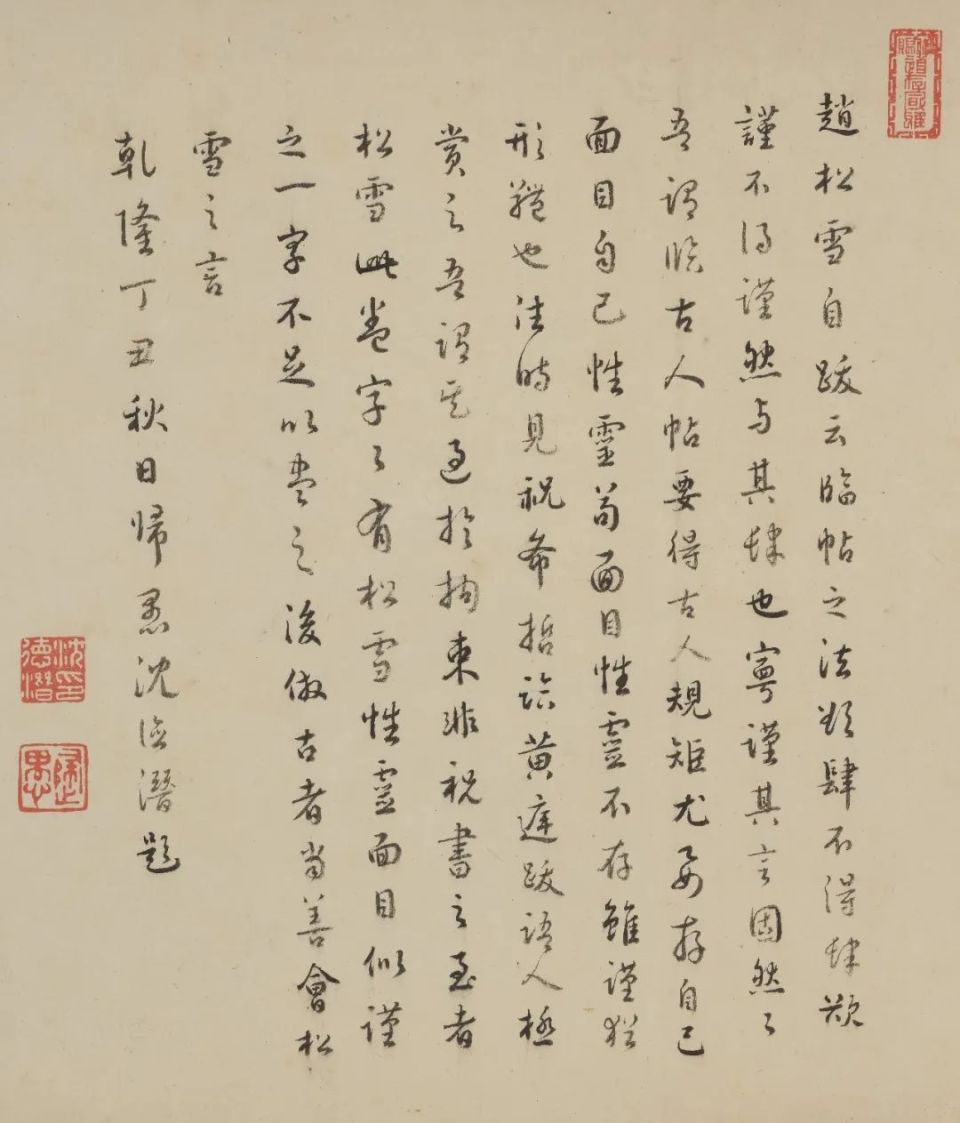 趙松雪自跋云臨帖之法欲肆不得肆欲
謹不得謹然与其肆也寧謹其言固然々
吾謂臨古人帖要得古人規矩尤要存自己
面目自己性靈苟面目性靈不存雖謹猶
形軆也往時見祝希哲臨黃庭跋語人極
賞之吾謂其過於拘束非祝書之至者
松雪此卷字々有松雪性靈面目似謹
之一字不足以盡之後倣古者當善會松
雪之言
乾隆丁丑秋日歸愚沈德潛題
沈印德潛
歸愚